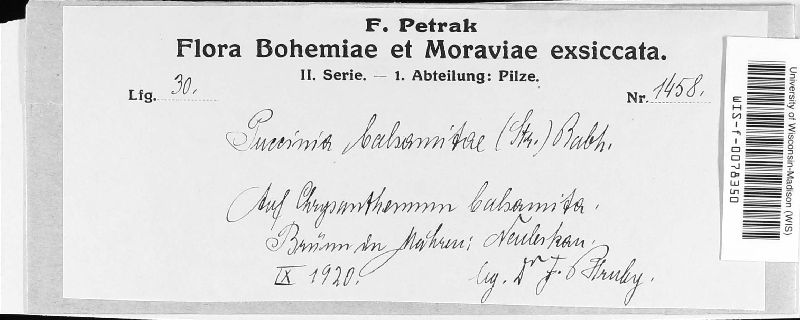 F. Petrak
Flora Bohemiae et Moraviae exsiccata.
II. Serie. — 1. Abteilung: Pilze.
Lfg. 30.
Nr. 1458.
Puccinia balsamitae (Str.) Rabh.
Auf Chrysanthemum balsamita.
Brünn in Mähren: Neuleskau.
IX 1920.
leg. Dr J. Hruby.
University of Wisconsin-Madison (WIS)
WIS-f-0078350